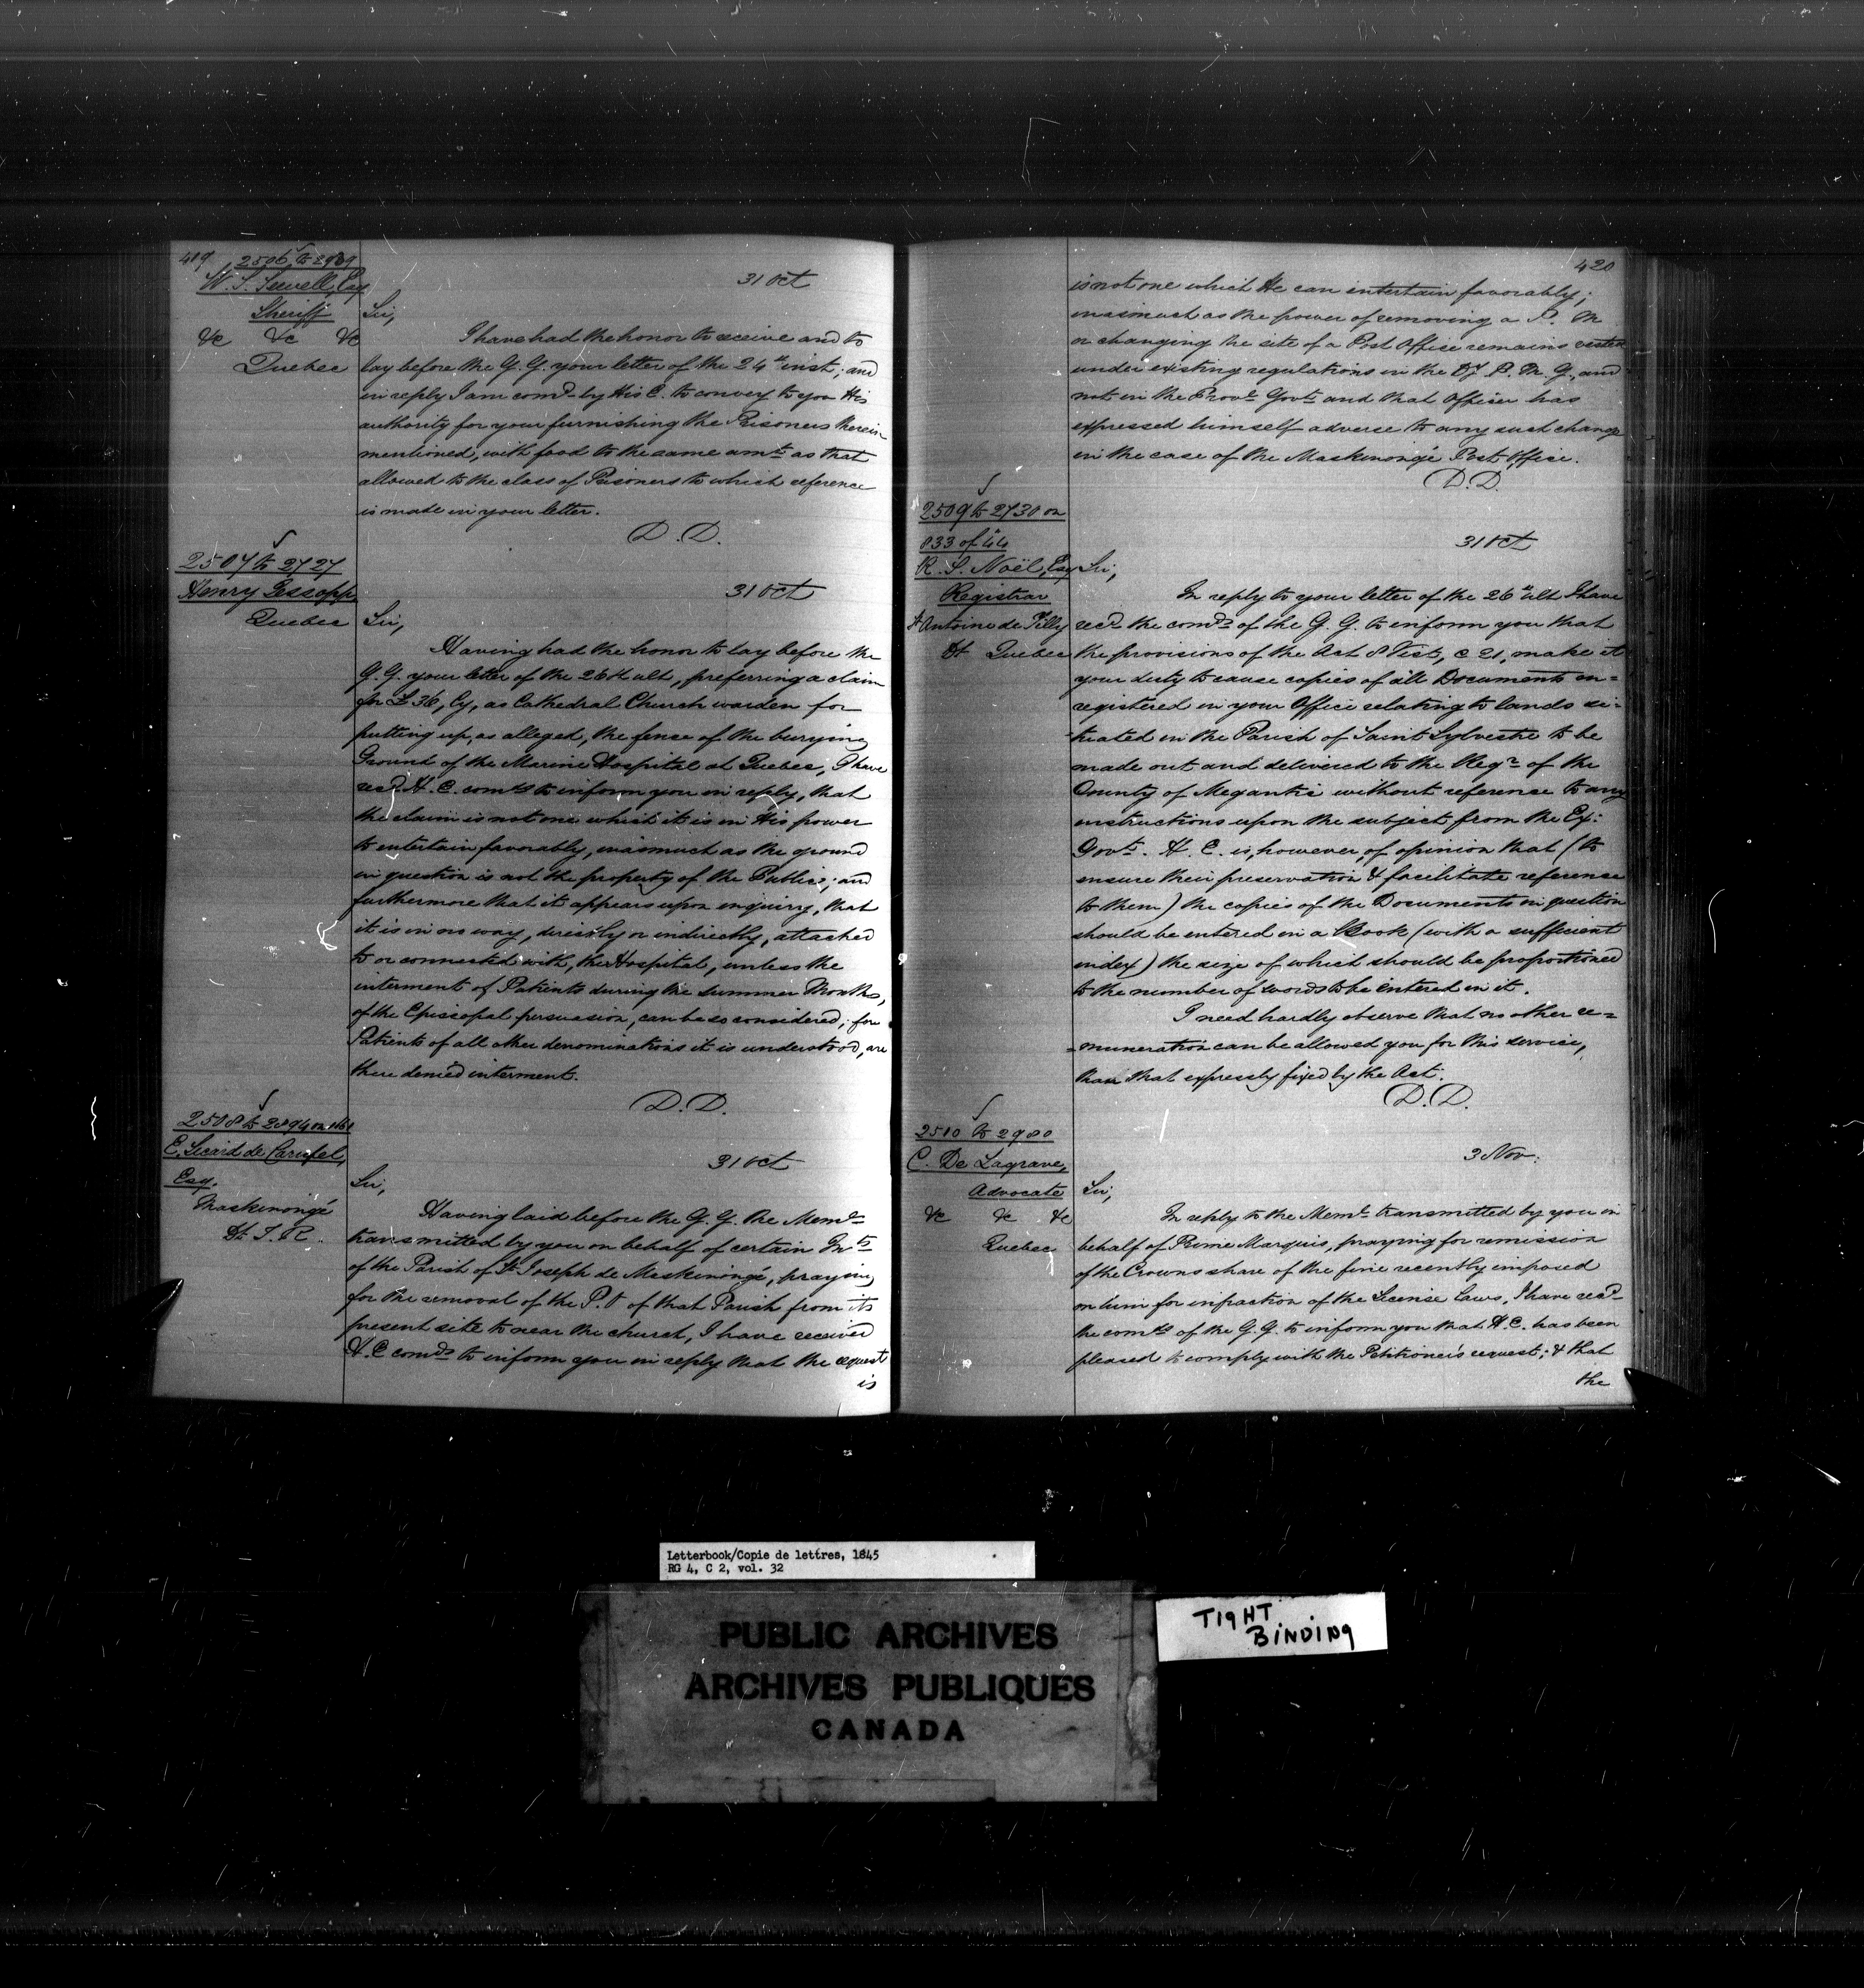 419
2506 to 2939
W. S. Sewell, Esq
Sheriff
&c &c &c
Quebec
31 Oct
Sir,
I have had the honor to receive and to
lay before the G. G. your letter of the 24th inst; and
in reply I am comd by His E. to convey to you His
authority for your furnishing the Prisoners therein
mentioned, with food to the same amt as that
allowed to the class of Prisoners to which reference
is made in your letter.
D. D.
2507 to 2727
Henry Jessopp
Quebec
31 Oct
Sir,
Having had the honor to lay before the
G. G. your letter of the 26th ult, preferring a claim
for £36, Cy, as Cathedral Church warden for
putting up, as alleged, the fense of the burying
Ground of the Marine Hospital at Quebec, I have
recd H. E. comds to inform you in reply, that
the claim is not one which it is in His power
to entertain favorably, inasmuch as the ground
in question is not the property of the Public; and
furthermore that it appears upon enquiry, that
it is in no way, directly or indirectly, attached
to or connected with, the Hospital, unless the
interment of Patients during the summer Months,
of the Episcopal persuasion, can be so considered; for
Patients of all other denominations it is understood, are
there denied interment.
D. D.
2508 to 2894 on
E. Sicard de Carufel,
Esq.
Maskinongé
Dt. T. R.
31 Oct
Sir,
Having laid before the G. G. the Meml
transmitted by you on behalf of certain Ints
of the Parish of St Joseph de Maskinongé, praying
for the removal of the P. O of that Parish from its
present site to near the church, I have received
H. E comds to inform you in reply that the request
is
420
is not one which He can entertain favorably;
inasmuch as the power of removing a P. M
or changing the site of a Post Office remains vested
under existing regulations in the Dy P. M. G., and
not in the Provl Govt and that Officer has
expressed himself adverse to any such change
in the case of the Maskinongé Post Office.
D. D.
2509 to 2730 on
833 of 44
R. S. Noël, Esq
Registrar
St Antoine de Tilly
Dt Quebec
31 Oct
Sir,
In reply to your letter of the 26th ult I have
recd the comds of the G. G. to inform you that
the provisions of the Act 8 Vict, c 21, make it
your duty to cause copies of all Documents en=
registered in your Office relating to lands si=
-tuated in the Parish of Saint Sylvestre to be
made out and delivered to the Regr of the
County of Megantic without reference to any
instructions upon the subject from the Ex:
Govt. H. E. is, however, of opinion that (to
ensure their preservation & facilitate reference
to them) the copies of the Documents in question
should be entered in a Book (with a sufficient
index) the size of which should be proportioned
to the number of words to be entered in it.
I need hardly observe that no other re=
=muneration can be allowed you for this service,
than that expressly fixed by the Act.
D. D.
2510 to 2980
C. De Lagrave,
Advocate
&c &c &c
Quebec
3 Nov:
Sir,
In reply to the Meml transmitted by you in
behalf of Prime Marquis, praying for remission
of the Crowns share of the fine recently imposed
on him for infraction of the License Laws, I have recd
the comds of the G. G. to inform you that H. E. has been
pleased to comply with the Petitioner's request; & that
the
Letterbook/Copie de lettres, 1845
RG 4, C 2, vol. 32
PUBLIC ARCHIVES
ARCHIVES PUBLIQUES
CANADA
TIGHT
BINDING